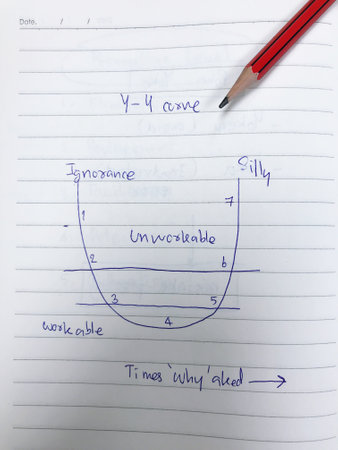 Date. / /
Y-Y curve
Ignorance
Silly
1
7
Unworkable
2
6
3
5
4
workable
Times 'why' aked →